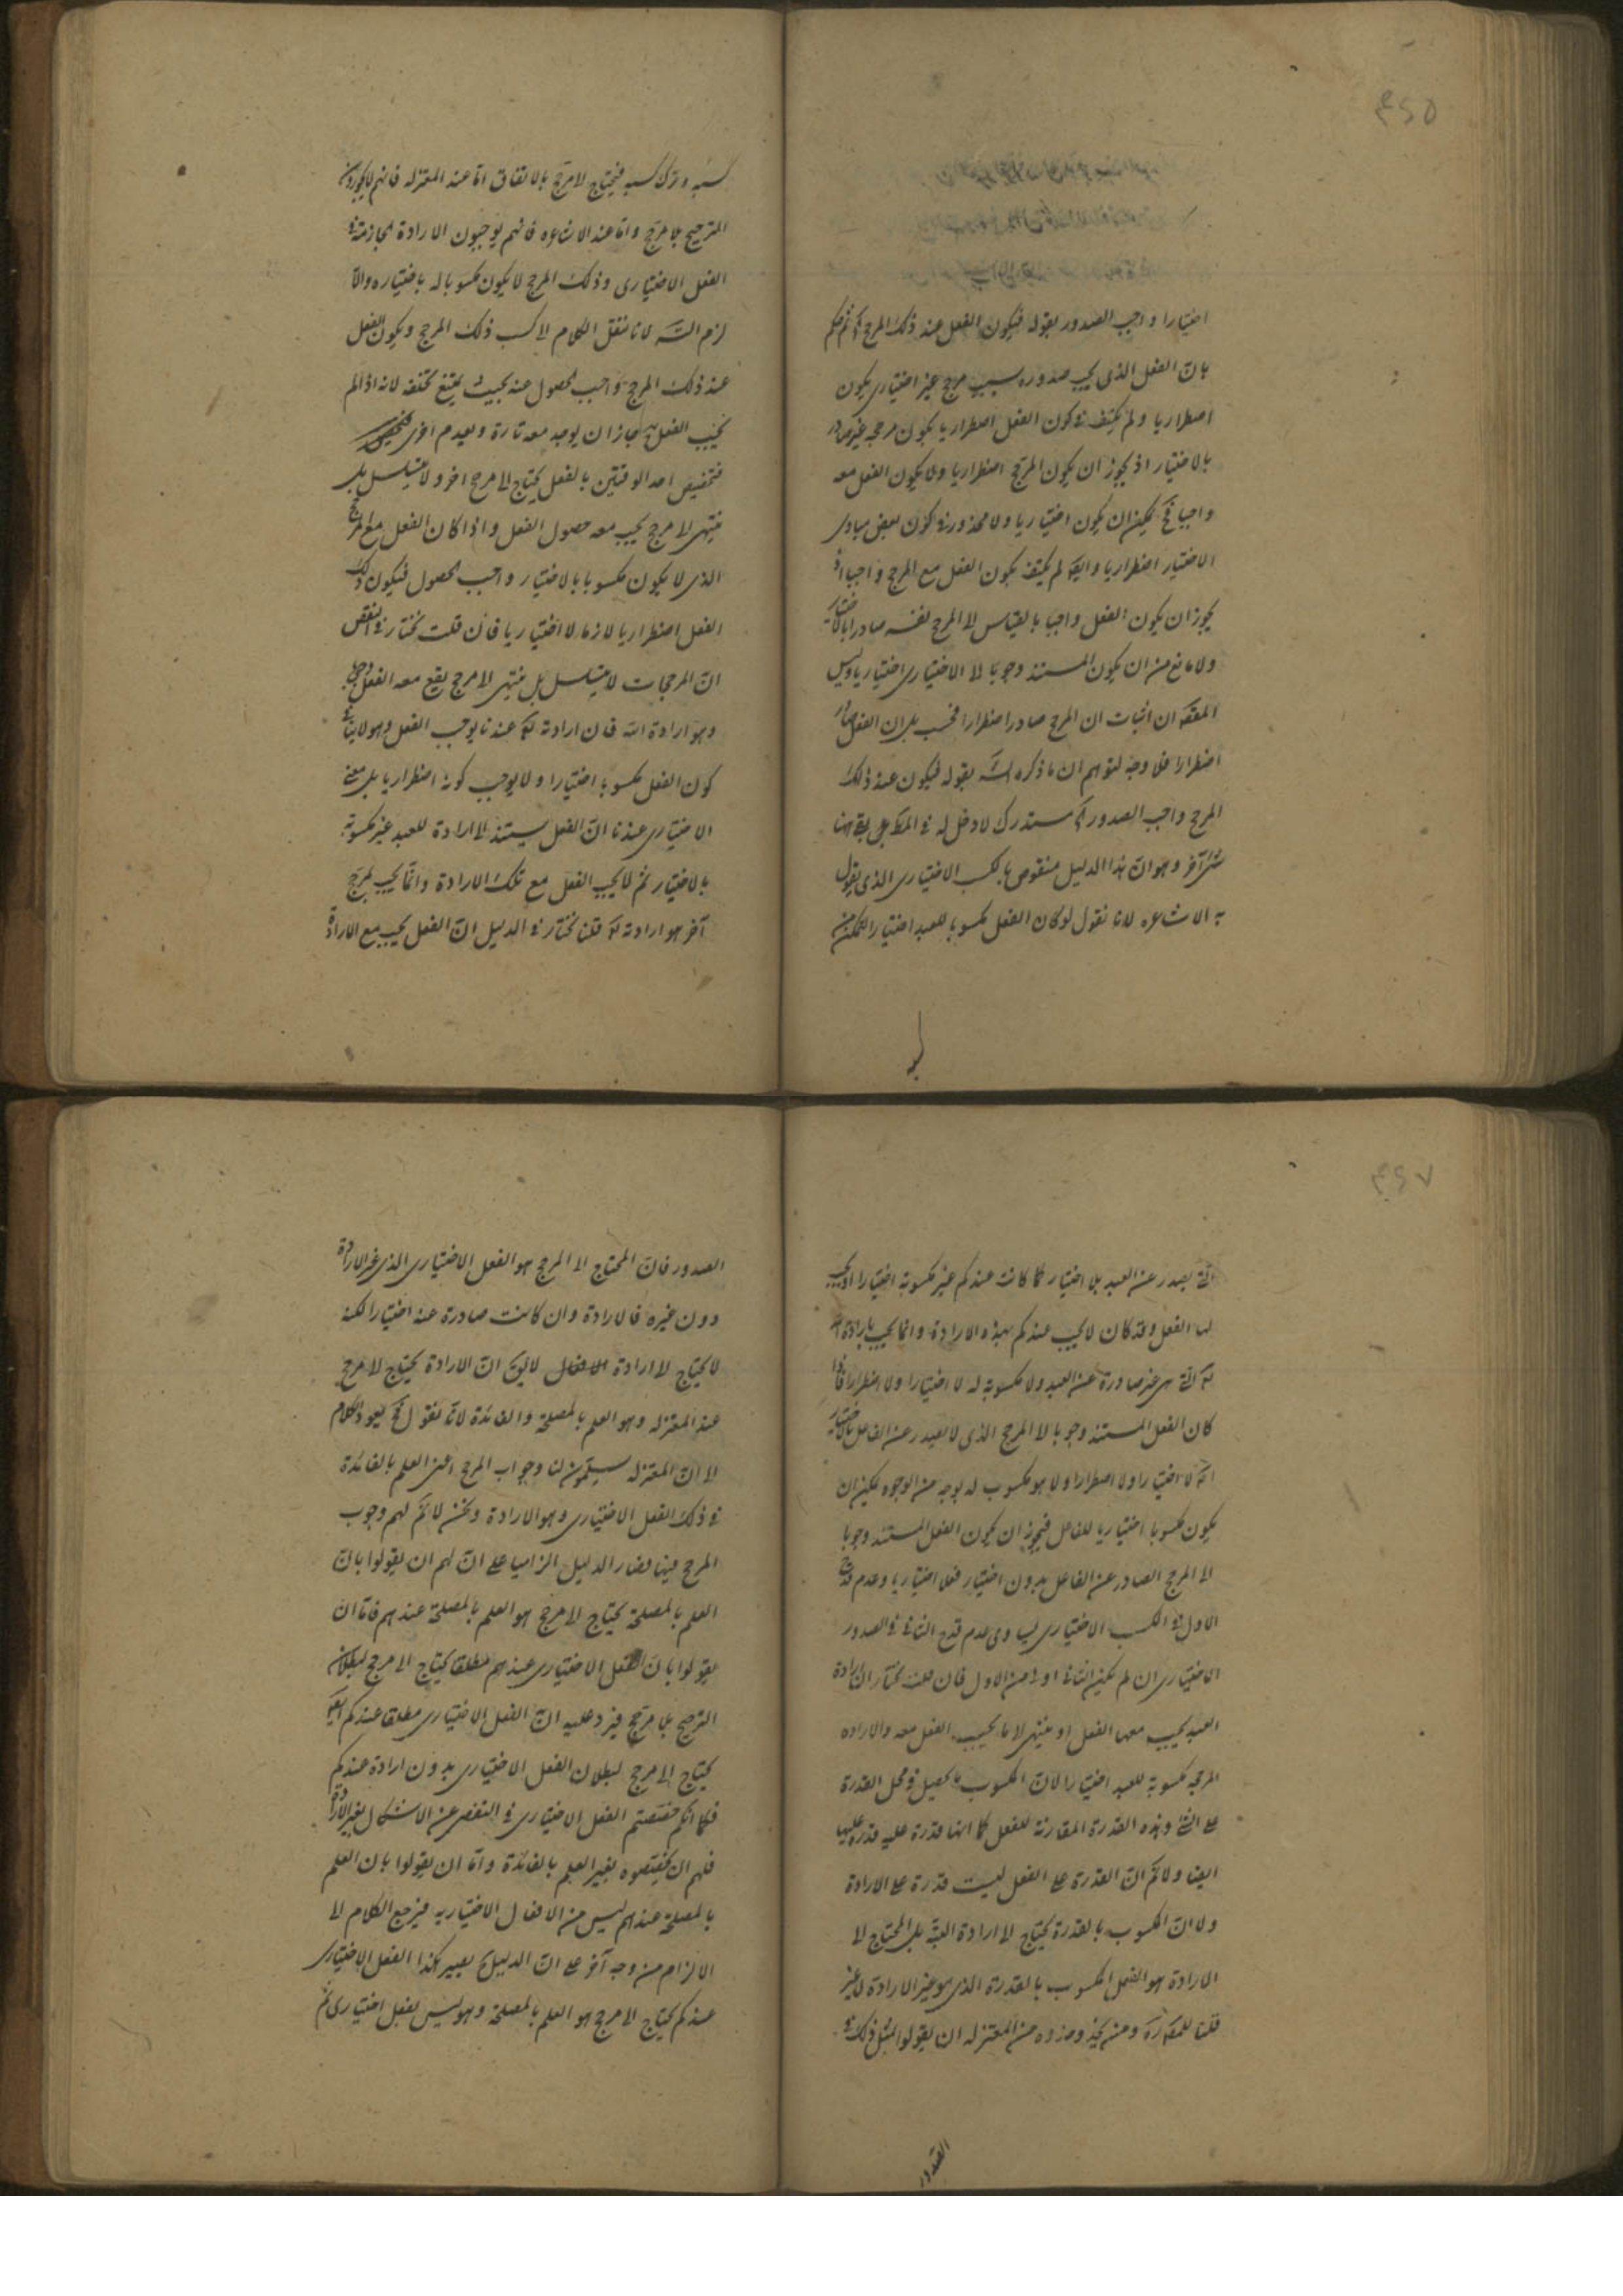 ٤٤٥
اختيارا واجب الصدور بقوله فيكون الفعل عند ذلك المرجح آه ثم حكم
بان الفعل الذى يجب صدوره بسبب مرجح غير اختيارى يكون
اضطراريا ولم يكتف فى كون الفعل اضطراريا بكون مرجحه غير صادر
بالاختيار اذ يجوز ان يكون المرجح اضطراريا ولا يكون الفعل معه
واجبا فح يمكن ان يكون اختياريا ولا محذور فى كون بعض مبادى
الاختيار اضطراريا وايضا لم يكتف بكون الفعل مع المرجح واجبا اذ
يجوز ان يكون الفعل واجبا بالقياس الى المرجح نفسه صادرا بالاختيار
ولا مانع من ان يكون المستند وجوبا الى الاختيارى اختياريا وليس
المقصود ان اثبات ان المرجح صادر اضطرارا فحسب بل ان الفعل صادر
اضطرارا فلا وجه لتوهم ان ما ذكره الشـ بقوله فيكون عند ذلك
المرجح واجب الصدور آه مستدرك لا دخل له فى المط بقى ههنا
شئ آخر وهو ان هذا الدليل منقوض بالكسب الاختيارى الذى يقول
به الاشاعره لانا نقول لو كان الفعل مكسوبا للعبد اختيارا لتمكن من
كسبه وترك كسبه فيحتاج الى مرجح بالاتفاق اما عند المعتزله فانهم لا يجوزون
الترجيح بلا مرجح واما عند الاشاعره فانهم يوجبون الارادة الجازمة فى
الفعل الاختيارى وذلك المرجح لا يكون مكسوبا له باختياره والا
لزم التسـ لانا ننقل الكلام الى كسب ذلك المرجح ويكون الفعل
عند ذلك المرجح واجب الحصول عنه بحيث يمتنع تخلفه لانه اذا لم
يجب الفعل جاز ان يوجد معه تارة ويعدم اخرى
فتخصيص احد الوقتين بالفعل يحتاج الى مرجح اخر ولا يتسلسل بل
ينتهى الى مرجح يجب معه حصول الفعل واذا كان الفعل مع المرجح
الذى لا يكون مكسوبا بالاختيار واجب الحصول فيكون ذلك
الفعل اضطراريا لازما لا اختياريا فان قلت نختار فى النقض
ان المرجحات لا يتسلسل بل ينتهى الى مرجح يقع معه الفعل وجوبا
وهو ارادة الله فان ارادته تع عندنا يوجب الفعل وهو لا ينافى
كون الفعل مكسوبا اختيارا ولا يوجب كونه اضطراريا بل معنى
الاختيارى عندنا ان الفعل يستند الى ارادة للعبد غير مكسوبة
بالاختيار ثم لا يجب الفعل مع تلك الارادة وانما يجب لمرجح
آخر هو ارادته تع قلنا نختار فى الدليل ان الفعل يجب مع الارادة
٤٤٧
التى يصدر عن العبد بلا اختيار كما كانت عندكم غير مكسوبة اختيارا او يجب
لها الفعل وقد كان لا يجب عندكم بهذه الارادة وانما يجب بارادة الله
تع التى هى غير صادرة عن العبد ولا مكسوبة له لا اختيارا ولا اضطرارا فاذا
كان الفعل المستند وجوبا الى المرجح الذى لا يصدر عن الفاعل بالاختيار
لا اختيارا ولا اضطرارا ولا هو مكسوب له بوجه من الوجوه يمكن ان
يكون مكسوبا اختياريا للفاعل فيجوز ان يكون الفعل المستند وجوبا
الى المرجح الصادر عن الفاعل بدون اختيار فعلا اختياريا وعدم قدح
الاول فى الكسب الاختيارى يساوى عدم قدح الثانى فى الصدور
الاختيارى ان لم يكن الثانى اولى من الاول فان قلت نختار ان ارادة
العبد يجب معها الفعل او ينتهى الى ما يجب الفعل معه والاراده
المرجحه مكسوبة للعبد اختيارا لان المكسوب ما يحصل فى محل القدرة
على الشئ وهذه القدرة المقارنة للفعل كما انها قدرة عليه قدرة عليها
ايضا ولا نم ان القدرة على الفعل ليست قدرة على الارادة
ولا ان المكسوب بالقدرة يحتاج الى ارادة البته بل المحتاج الى
الارادة هو الفعل المكسوب بالقدرة الذى هو غير الارادة لا غير
قلنا للمعتزلة ومن يحذو حذوه من المعتزله ان يقولوا بمثل ذلك فى
الصدور
الصدور فان المحتاج الى المرجح هو الفعل الاختيارى الذى غير الارادة
دون غيره فالارادة وان كانت صادرة عنه اختيارا لكنه
لا يحتاج الى ارادة لا يق ان الارادة يحتاج الى مرجح
عند المعتزله وهو العلم بالمصلحة والفائدة لانا نقول فح يعود الكلام
الى ان المعتزله يسلمون لنا وجوب المرجح اعنى العلم بالفائدة
فى ذلك الفعل الاختيارى وهو الارادة ونحن لا نم لهم وجوب
المرجح فيها فصار الدليل الزاميا على ان لهم ان يقولوا بان
العلم بالمصلحة يحتاج الى مرجح هو العلم بالمصلحة عندهم فاما ان
يقولوا بان الفعل الاختيارى عندهم مطلقا يحتاج الى مرجح لبطلان
الترجيح بلا مرجح فيرد عليه ان الفعل الاختيارى مطلقا عندكم ايضا
يحتاج الى مرجح لبطلان الفعل الاختيارى بدون ارادة عندكم
فكما انكم خصصتم الفعل الاختيارى فى التفصى عن الاشكال بغير الارادة
فلهم ان يخصصوه بغير العلم بالفائدة واما ان يقولوا بان العلم
بالمصلحة عندهم ليس من الافعال الاختياريه فيرجع الكلام الى
الالزام من وجه آخر على ان الدليل يصير هكذا الفعل الاختيارى
عندكم يحتاج الى مرجح هو العلم بالمصلحة وهو ليس بفعل اختيارى ثم